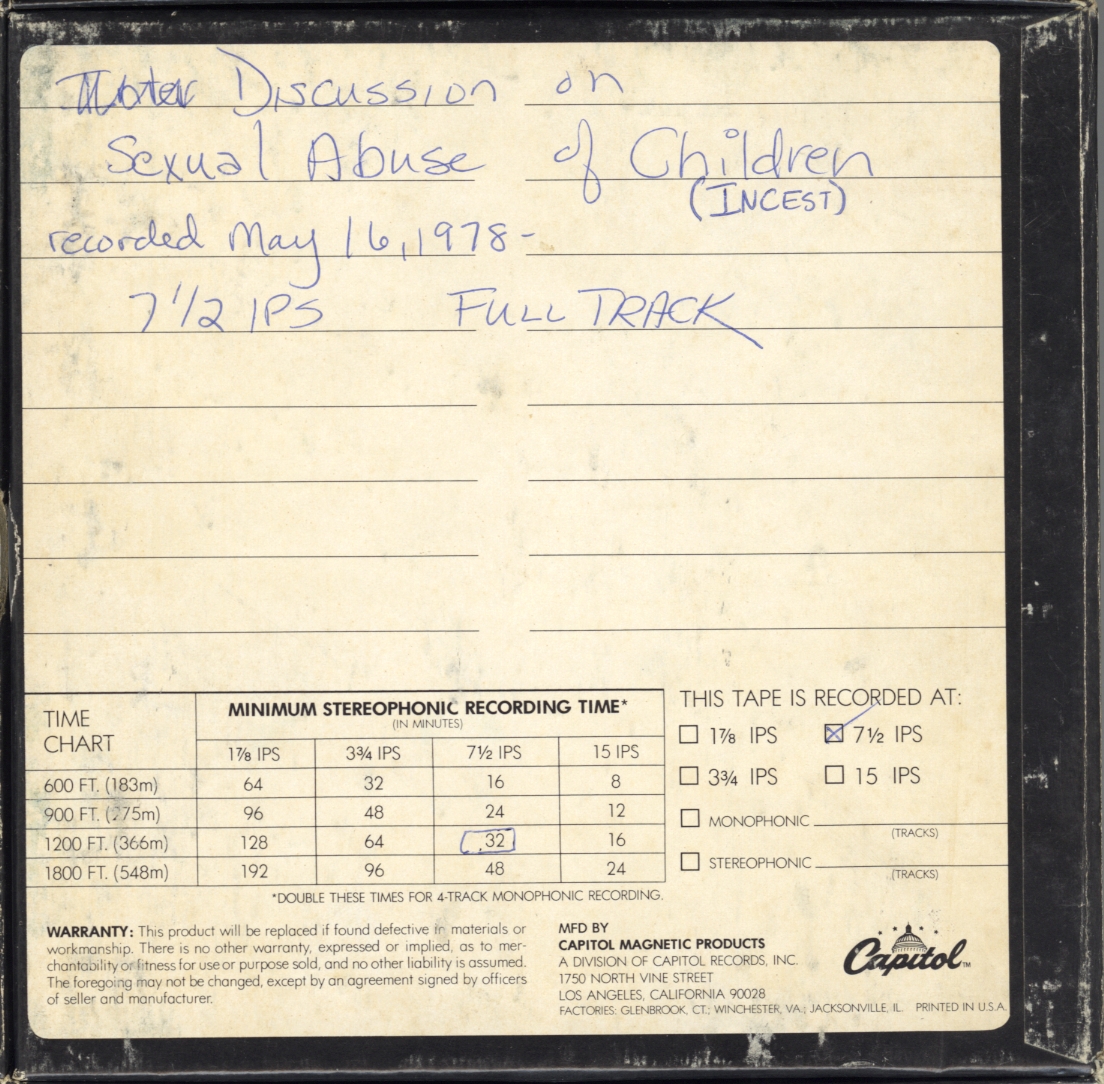 Discussion on
Sexual Abuse of Children
(INCEST)
recorded May 16, 1978-
7 1/2 IPS FULL TRACK
TIME CHART
MINIMUM STEREOPHONIC RECORDING TIME*
(IN MINUTES)
1⅞ IPS 3¾ IPS 7½ IPS 15 IPS
600 FT. (183m) 64 32 16 8
900 FT. (275m) 96 48 24 12
1200 FT. (366m) 128 64 32 16
1800 FT. (548m) 192 96 48 24
*DOUBLE THESE TIMES FOR 4-TRACK MONOPHONIC RECORDING.
THIS TAPE IS RECORDED AT:
1⅞ IPS 7½ IPS
3¾ IPS 15 IPS
MONOPHONIC
(TRACKS)
STEREOPHONIC
(TRACKS)
WARRANTY: This product will be replaced if found defective in materials or
workmanship. There is no other warranty, expressed or implied, as to mer-
chantability or fitness for use or purpose sold, and no other liability is assumed.
The foregoing may not be changed, except by an agreement signed by officers
of seller and manufacturer.
MFD BY
CAPITOL MAGNETIC PRODUCTS
A DIVISION OF CAPITOL RECORDS, INC.
1750 NORTH VINE STREET
LOS ANGELES, CALIFORNIA 90028
FACTORIES: GLENBROOK, CT.; WINCHESTER, VA.; JACKSONVILLE, IL. PRINTED IN U.S.A.
Capitol™